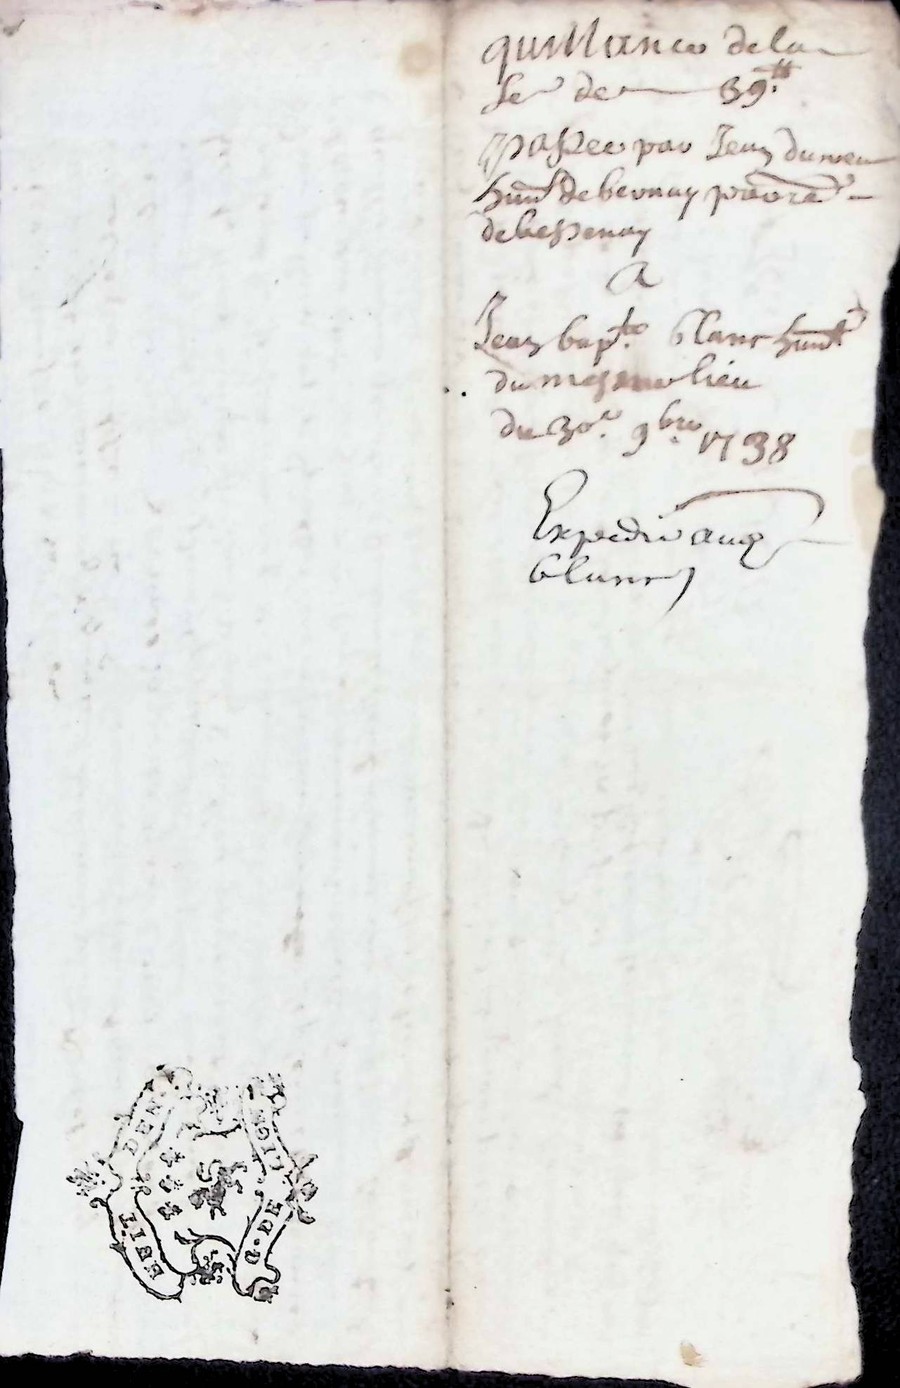 quittance de la
se de 39.tt
passee par Jean dumeu
de bernay
de bessenay
A
Jean bapte. blanc
du mesme lieu
du 30e. 9bre. 1738
Expedié aud
blanc
HUIT. DEN.
G. DE LION